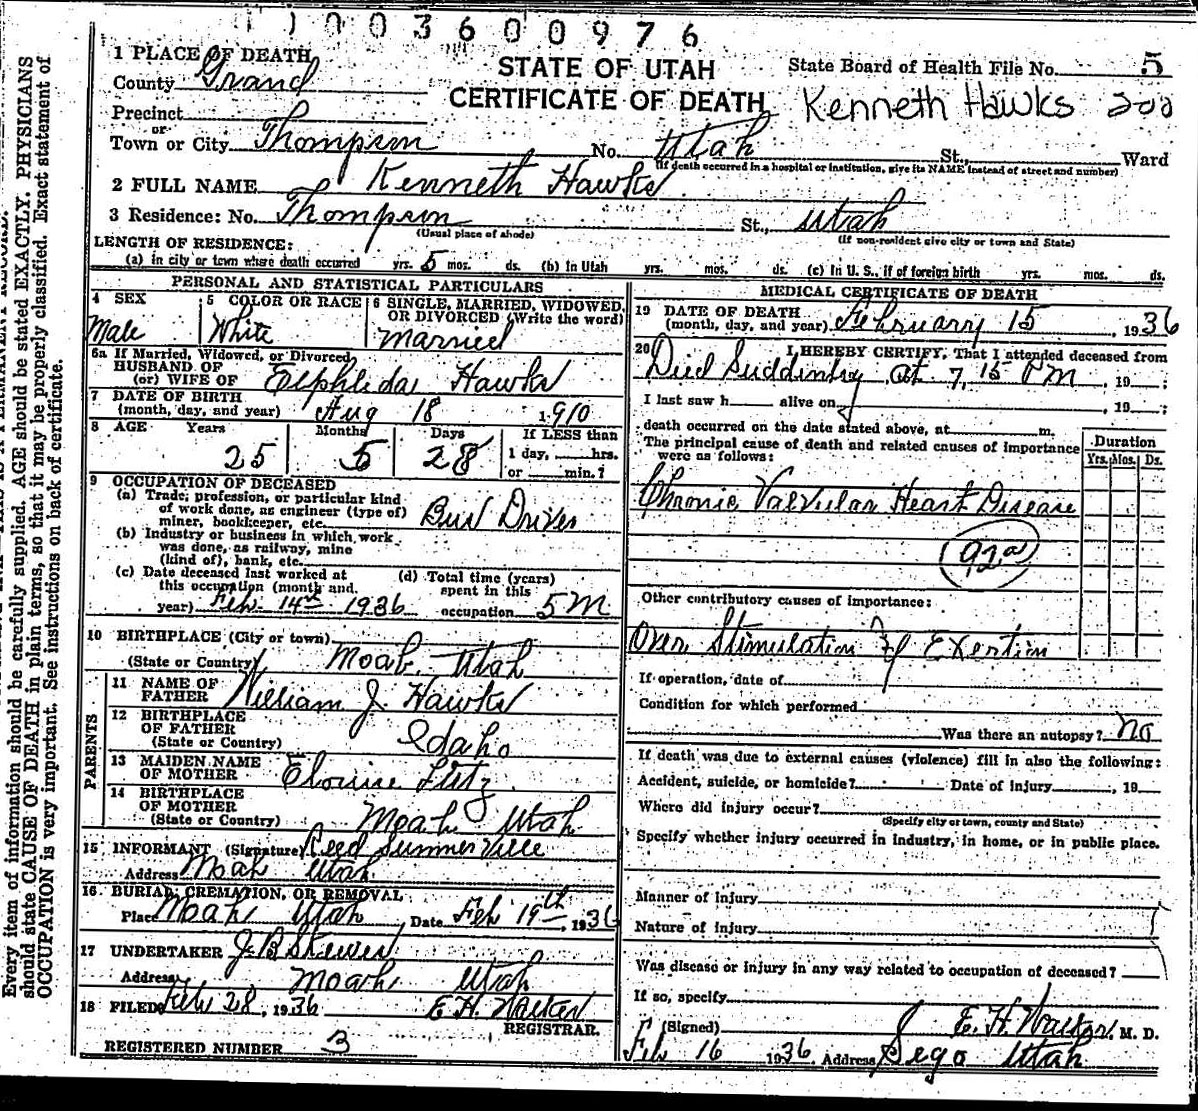 1003600976
1 PLACE OF DEATH
STATE OF UTAH
State Board of Health File No. 5
County Grand
CERTIFICATE OF DEATH
Kenneth Hawks 200
Precinct
or
Town or City Thompson No. Utah St., Ward
(If death occurred in a hospital or institution, give its NAME instead of street and number)
2 FULL NAME Kenneth Hawks
3 Residence: No. Thompson St., Utah
(Usual place of abode) (If non-resident give city or town and State)
LENGTH OF RESIDENCE:
(a) in city or town where death occurred yrs. 5 mos. ds. (b) In Utah yrs. mos. ds. (c) In U. S., if of foreign birth yrs. mos. ds.
PERSONAL AND STATISTICAL PARTICULARS
4 SEX
Male
5 COLOR OR RACE
White
6 SINGLE, MARRIED, WIDOWED,
OR DIVORCED (Write the word)
Married
6a If Married, Widowed, or Divorced
HUSBAND OF
(or) WIFE OF Elphleda Hawks
7 DATE OF BIRTH
(month, day, and year) Aug 18 1910
8 AGE Years Months Days If LESS than
25 5 28 1 day, hrs.
or min.?
9 OCCUPATION OF DECEASED
(a) Trade, profession, or particular kind
of work done, as engineer (type of)
miner, bookkeeper, etc. Bus Driver
(b) Industry or business in which work
was done, as railway, mine
(kind of), bank, etc.
(c) Date deceased last worked at
this occupation (month and
year) Feb. 14th 1936
(d) Total time (years)
spent in this
occupation 5 M
10 BIRTHPLACE (City or town)
(State or Country) Moab Utah
PARENTS
11 NAME OF
FATHER William J. Hawks
12 BIRTHPLACE
OF FATHER
(State or Country) Idaho
13 MAIDEN NAME
OF MOTHER Elouise
14 BIRTHPLACE
OF MOTHER
(State or Country) Moab Utah
15 INFORMANT (Signature) Reed Summerville
Address Moab Utah
16 BURIAL, CREMATION, OR REMOVAL
Place Moab Utah Date Feb 19th, 1936
17 UNDERTAKER J. B. Skewes
Address Moab Utah
18 FILED Feb 28, 1936 E. H. Walker
REGISTRAR.
REGISTERED NUMBER 3
MEDICAL CERTIFICATE OF DEATH
19 DATE OF DEATH
(month, day, and year) February 15, 1936
20 I HEREBY CERTIFY, That I attended deceased from
Died Suddenly at 7,15 PM, 19 ;
I last saw h alive on , 19 ;
death occurred on the date stated above, at m.
The principal cause of death and related causes of importance
were as follows:
Duration
Yrs. Mos. Ds.
Chronic Valvular Heart Disease
92a
Other contributory causes of importance:
Over Stimulation of Exertion
If operation, date of
Condition for which performed
Was there an autopsy? no
If death was due to external causes (violence) fill in also the following:
Accident, suicide, or homicide? Date of injury , 19
Where did injury occur?
(Specify city or town, county and State)
Specify whether injury occurred in industry, in home, or in public place.
Manner of Injury
Nature of Injury
Was disease or injury in any way related to occupation of deceased?
If so, specify
(Signed) E. H. Walker, M. D.
Feb 16 1936. Address Sego Utah
Every item of information should be carefully supplied. AGE should be stated EXACTLY. PHYSICIANS
should state CAUSE OF DEATH in plain terms, so that it may be properly classified. Exact statement of
OCCUPATION is very important. See instructions on back of certificate.